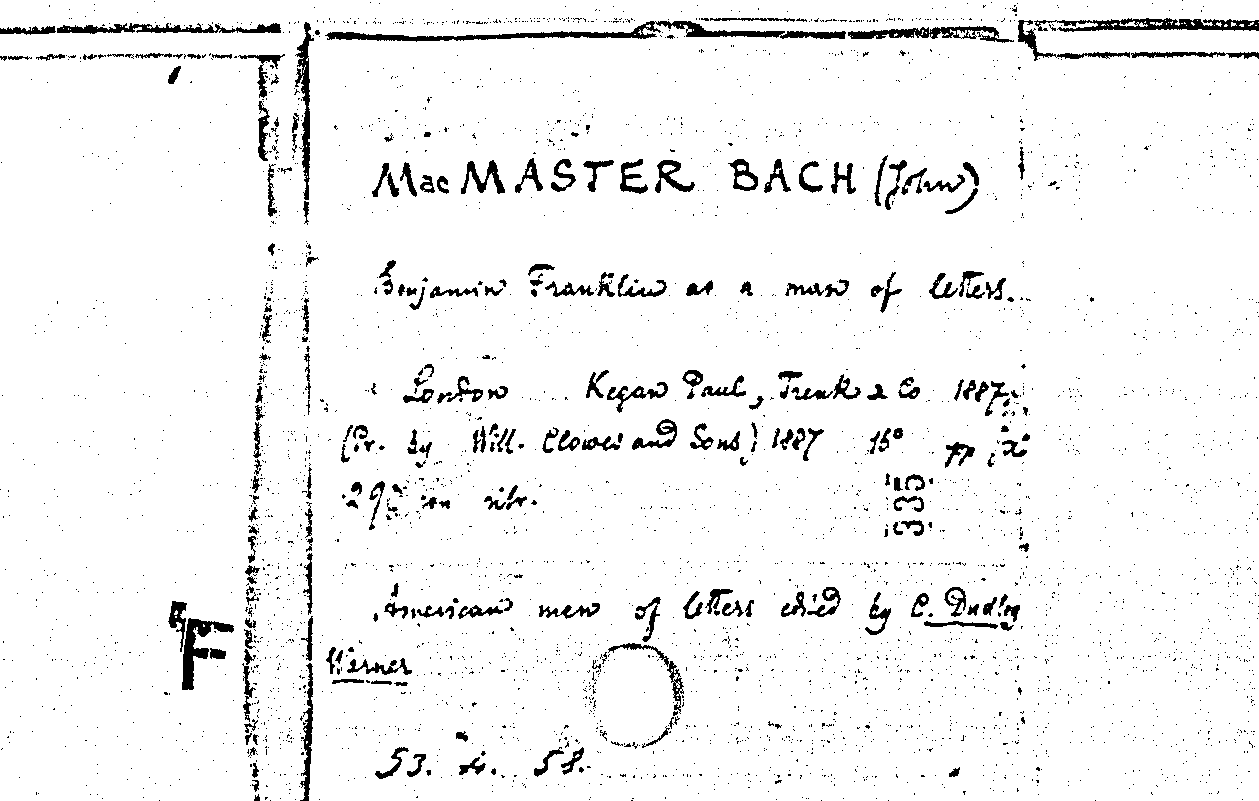 MacMASTER BACH (John)
Benjamin Franklin as a man of letters.
London Kegan Paul, Trenk & Co 1887,
(Pr. by Will. Clowes and Sons) 1887 16° pp
335
American men of letters edited by C. Dudley
Warner
53. 58.
F